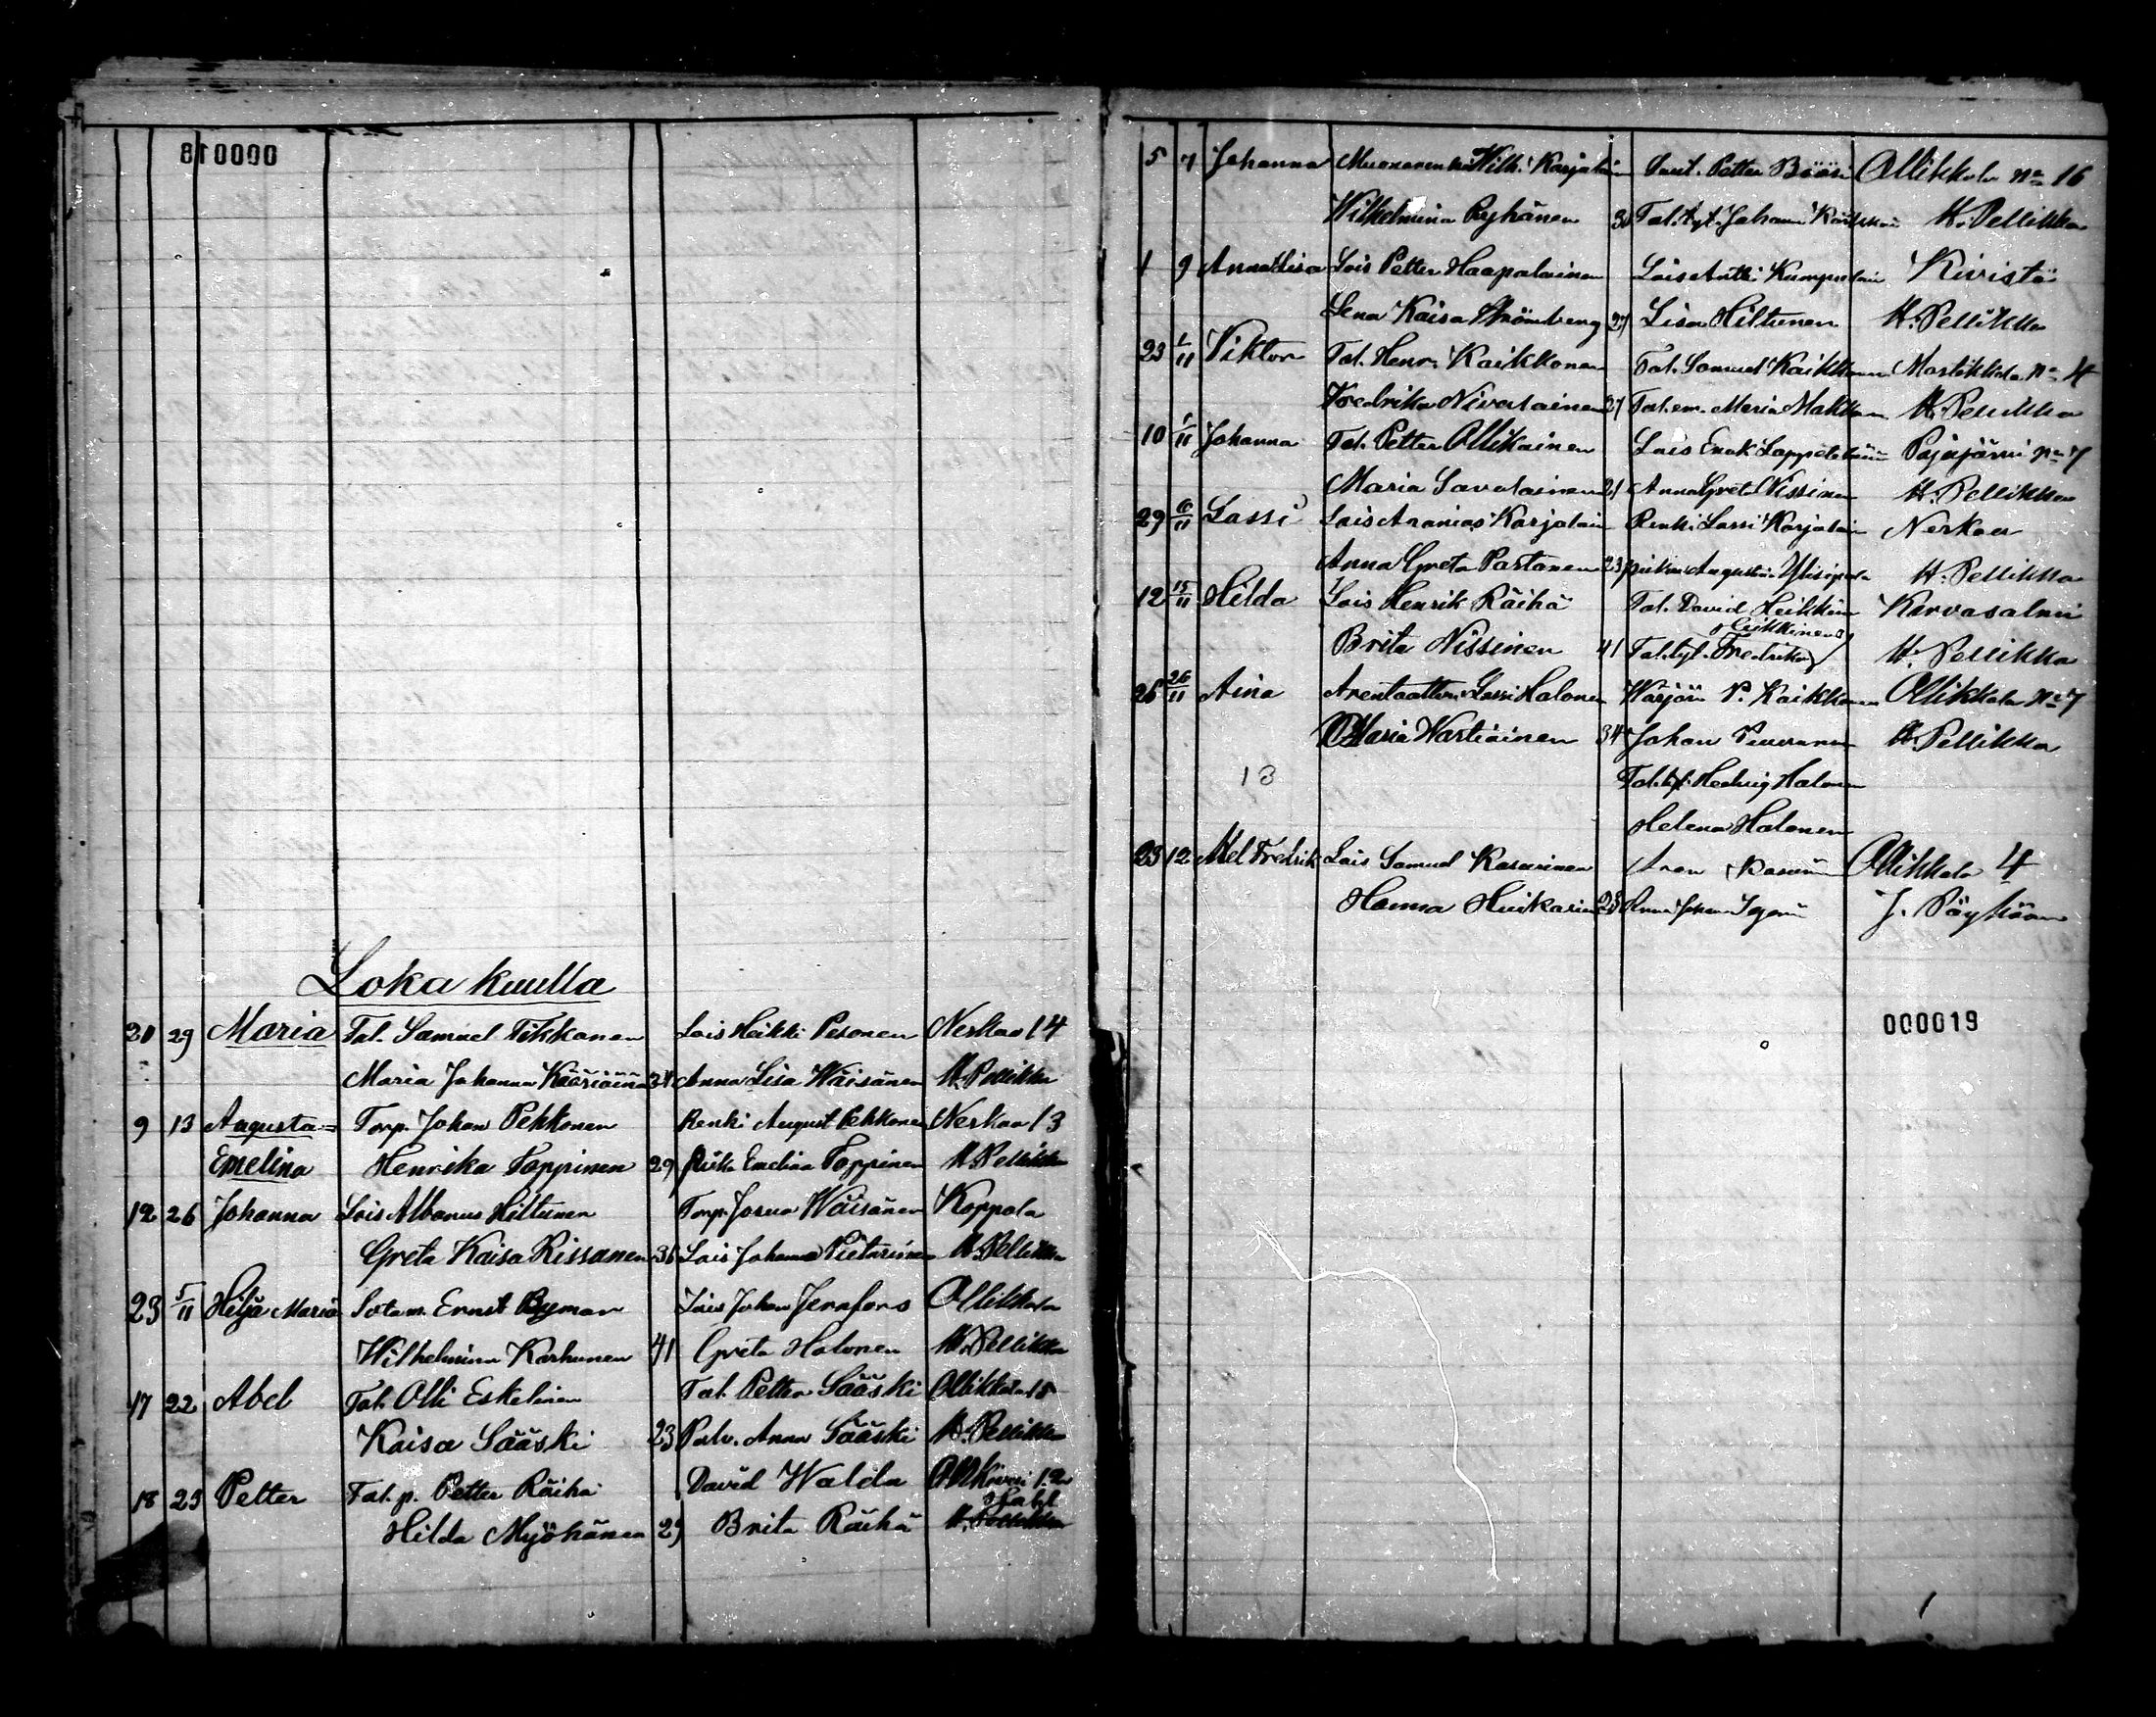 000018
Loka kuulla
20 29 Maria Tal. Samuel Tikkanen Lois Heikki Pesonen Nerkoo 14
Maria Johanna Kääriäin 34 Anna Lisa Wäisänen H. Pellikka
9 13 Augusta= Torp. Johan Pekkonen Renki August Pekkonen Nerkoo 13
Emelina Henrika Toppinen 29 Piika Emelina Toppinen H. Pellikka
12 26 Johanna Lois Albanus Hiltunen Torp. Josua Wäisänen Koppola
Greta Kaisa Rissanen 36 Lois Johanna Pietarinen H. Pellikka
23 5/11 Hilja Maria Sotam. Ernst Lois Johan Jernfors Ollikkala
Wilhelmina Karhunen 41 Greta Halonen H. Pellikka
17 22 Abel Tal. Olli Eskelinen Tal. Petter Sääski Ollikkala 15
Kaisa Sääski 23 Palv. Anna Sääski H. Pellikka
18 23 Petter Tal. p. Petter Räihä David Walda 12
Hilda Myöhänen 29 Brita Räihä H. Pellikka
5 7 Johanna Karjalain Petter Bääri Ollikkala no 16
Wilhelmina Ryhänen 30 Tal. tyt. Johanna H. Pellikka
1 9 Anna Lisa Lois Petter Haapalainen Lois Antti Kumpulain Kivistö
Lena Kaisa Strömberg 27 Lisa Hiltunen H. Pellikka
23 1/11 Viktor Tal. Henr. Kaikkonen Tal. Samuel Kaikkonen no 4
Fredrika Nivalainen 27 Tal. em. Maria Makkon H. Pellikka
10 1/11 Johanna Tal. Petter Ollikainen Lois Enok Lappeteläin Pajujärvi no 7
Maria Savolainen 21 Anna Greta Nissinen H. Pellikka
29 6/11 Lassi Lois Ananias Karjalain Renki Lassi Karjalain Nerkoo
Anna Greta Partanen 23 H. Pellikka
12 15/11 Hilda Lois Henrik Räihä Tal. David Heikkin Karvasalmi
Heikkinen
Brita Nissinen 41 Tal. tyt. Fredrika H. Pellikka
25 26/11 Aina Arentaattori Lassi Halonen Wärjäri P. Kaikkonen Ollikkala no 7
Maria Wartiainen 34 Johan H. Pellikka
13 Tal. tyt. Hedvig Halonen
Helena Halonen
23 12 Axel Fredrik Lois Samuel Kasurinen Ollikkala 4
Hanna 28 Anna J. Pöyhönen
000019